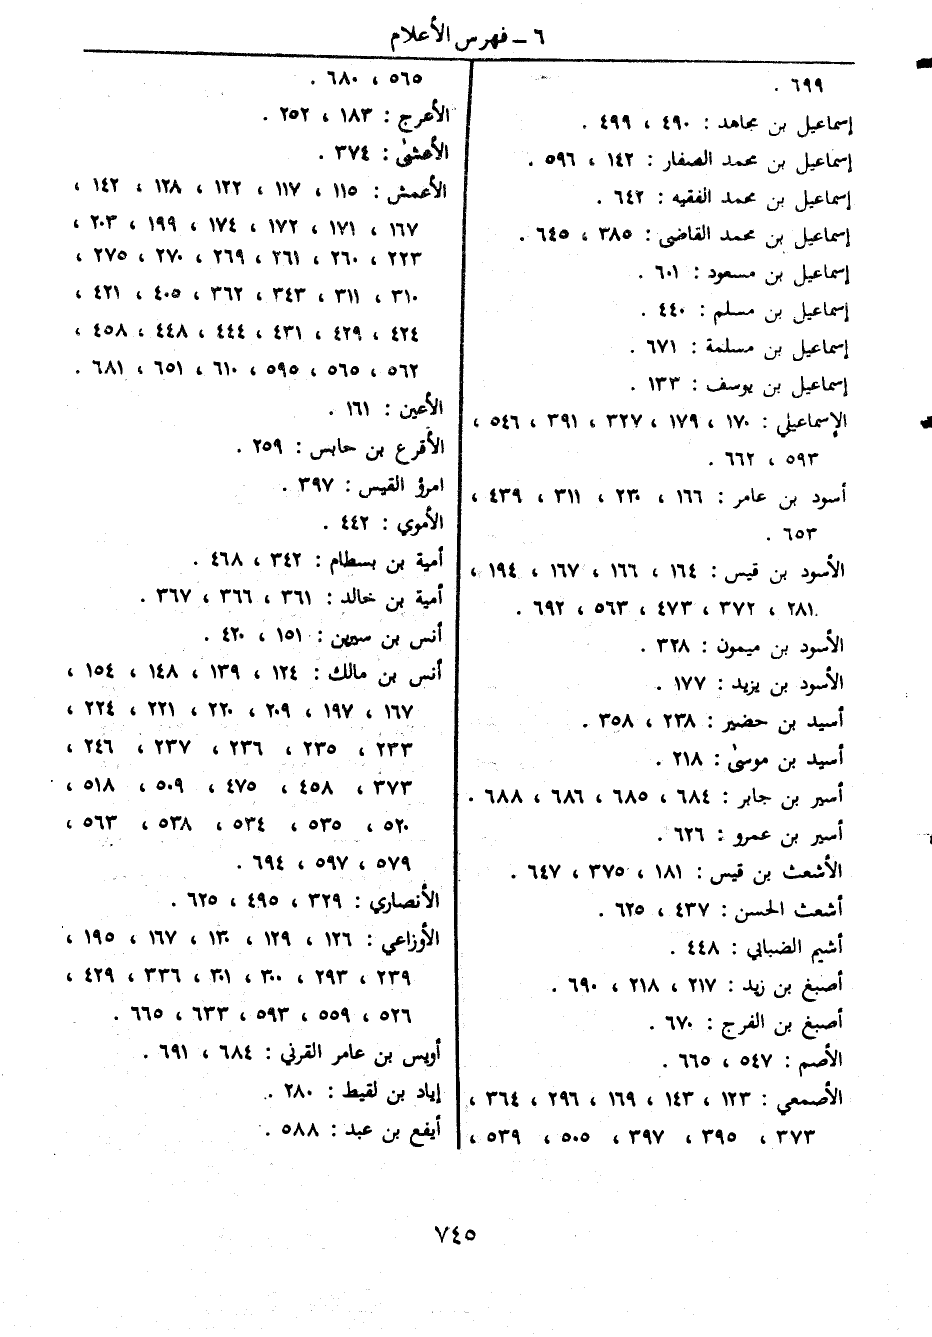 ٦ ــ فهرس الأعلام
٦٩٩ .
إسماعيل بن مجاهد : ٤٩٠ ، ٤٩٩ .
إسماعيل بن محمد الصفار : ١٤٢ ، ٥٩٦ .
إسماعيل بن محمد الفقيه : ٦٤٢ .
إسماعيل بن محمد القاضي : ٣٨٥ ، ٦٤٥ .
إسماعيل بن مسعود : ٦٠١ .
إسماعيل بن مسلم : ٤٤٠ .
إسماعيل بن مسلمة : ٦٧١ .
إسماعيل بن يوسف : ١٣٣ .
الإسماعيلي : ١٧٠ ، ١٧٩ ، ٣٢٧ ، ٣٩١ ، ٥٤٦ ،
٥٩٣ ، ٦٦٢ .
أسود بن عامر : ١٦٦ ، ٢٣٠ ، ٣١١ ، ٤٣٩ ،
٦٥٣ .
الأسود بن قيس : ١٦٤ ، ١٦٦ ، ١٦٧ ، ١٩٤ ،
٢٨١ ، ٣٧٢ ، ٤٧٣ ، ٥٦٣ ، ٦٩٢ .
الأسود بن ميمون : ٣٢٨ .
الأسود بن يزيد : ١٧٧ .
أسيد بن حضير : ٢٣٨ ، ٣٥٨ .
أسيد بن موسىٰ : ٢١٨ .
أسير بن جابر : ٦٨٤ ، ٦٨٥ ، ٦٨٦ ، ٦٨٨ .
أسير بن عمرو : ٦٢٦ .
الأشعث بن قيس : ١٨١ ، ٣٧٥ ، ٦٤٧ .
أشعث الحسن : ٤٣٧ ، ٦٢٥ .
أشيم الضبابي : ٤٤٨ .
أصبغ بن زيد : ٢١٧ ، ٢١٨ ، ٦٩٠ .
أصبغ بن الفرج : ٦٧٠ .
الأصم : ٥٤٧ ، ٦٦٥ .
الأصمعي : ١٢٣ ، ١٤٣ ، ١٦٩ ، ٢٩٦ ، ٣٦٤ ،
٣٧٣ ، ٣٩٥ ، ٣٩٧ ، ٥٠٥ ، ٥٣٩ ،
٥٦٥ ، ٦٨٠ .
الأعرج : ١٨٣ ، ٢٥٢ .
الأعشىٰ : ٣٧٤ .
الأعمش : ١١٥ ، ١١٧ ، ١٢٢ ، ١٢٨ ، ١٤٢ ،
١٦٧ ، ١٧١ ، ١٧٢ ، ١٧٤ ، ١٩٩ ، ٢٠٣ ،
٢٢٣ ، ٢٦٠ ، ٢٦١ ، ٢٦٩ ، ٢٧٠ ، ٢٧٥ ،
٣١٠ ، ٣١١ ، ٣٤٣ ، ٣٦٢ ، ٤٠٥ ، ٤٢١ ،
٤٢٤ ، ٤٢٩ ، ٤٣١ ، ٤٤٤ ، ٤٤٨ ، ٤٥٨ ،
٥٦٢ ، ٥٦٥ ، ٥٩٥ ، ٦١٠ ، ٦٥١ ، ٦٨١ .
الأعين : ١٦١ .
الأقرع بن حابس : ٢٥٩ .
امرؤ القيس : ٣٩٧ .
الأموي : ٤٤٢ .
أمية بن بسطام : ٣٤٢ ، ٤٦٨ .
أمية بن خالد : ٣٦١ ، ٣٦٦ ، ٣٦٧ .
أنس بن سيرين : ١٥١ ، ٤٢٠ .
أنس بن مالك : ١٢٤ ، ١٣٩ ، ١٤٨ ، ١٥٤ ،
١٦٧ ، ١٩٧ ، ٢٠٩ ، ٢٢٠ ، ٢٢١ ، ٢٢٤ ،
٢٣٣ ، ٢٣٥ ، ٢٣٦ ، ٢٣٧ ، ٢٤٦ ،
٣٧٣ ، ٤٥٨ ، ٤٧٥ ، ٥٠٩ ، ٥١٨ ،
٥٢٠ ، ٥٣٥ ، ٥٣٤ ، ٥٣٨ ، ٥٦٣ ،
٥٧٩ ، ٥٩٧ ، ٦٩٤ .
الأنصاري : ٣٢٩ ، ٤٩٥ ، ٦٢٥ .
الأوزاعي : ١٢٦ ، ١٢٩ ، ١٣٠ ، ١٦٧ ، ١٩٥ ،
٢٣٩ ، ٢٩٣ ، ٣٠٠ ، ٣٠١ ، ٣٣٦ ، ٤٢٩ ،
٥٢٦ ، ٥٥٩ ، ٥٩٣ ، ٦٣٣ ، ٦٦٥ .
أويس بن عامر القرني : ٦٨٤ ، ٦٩١ .
إياد بن لقيط : ٢٨٠ .
أيفع بن عبد : ٥٨٨ .
٧٤٥